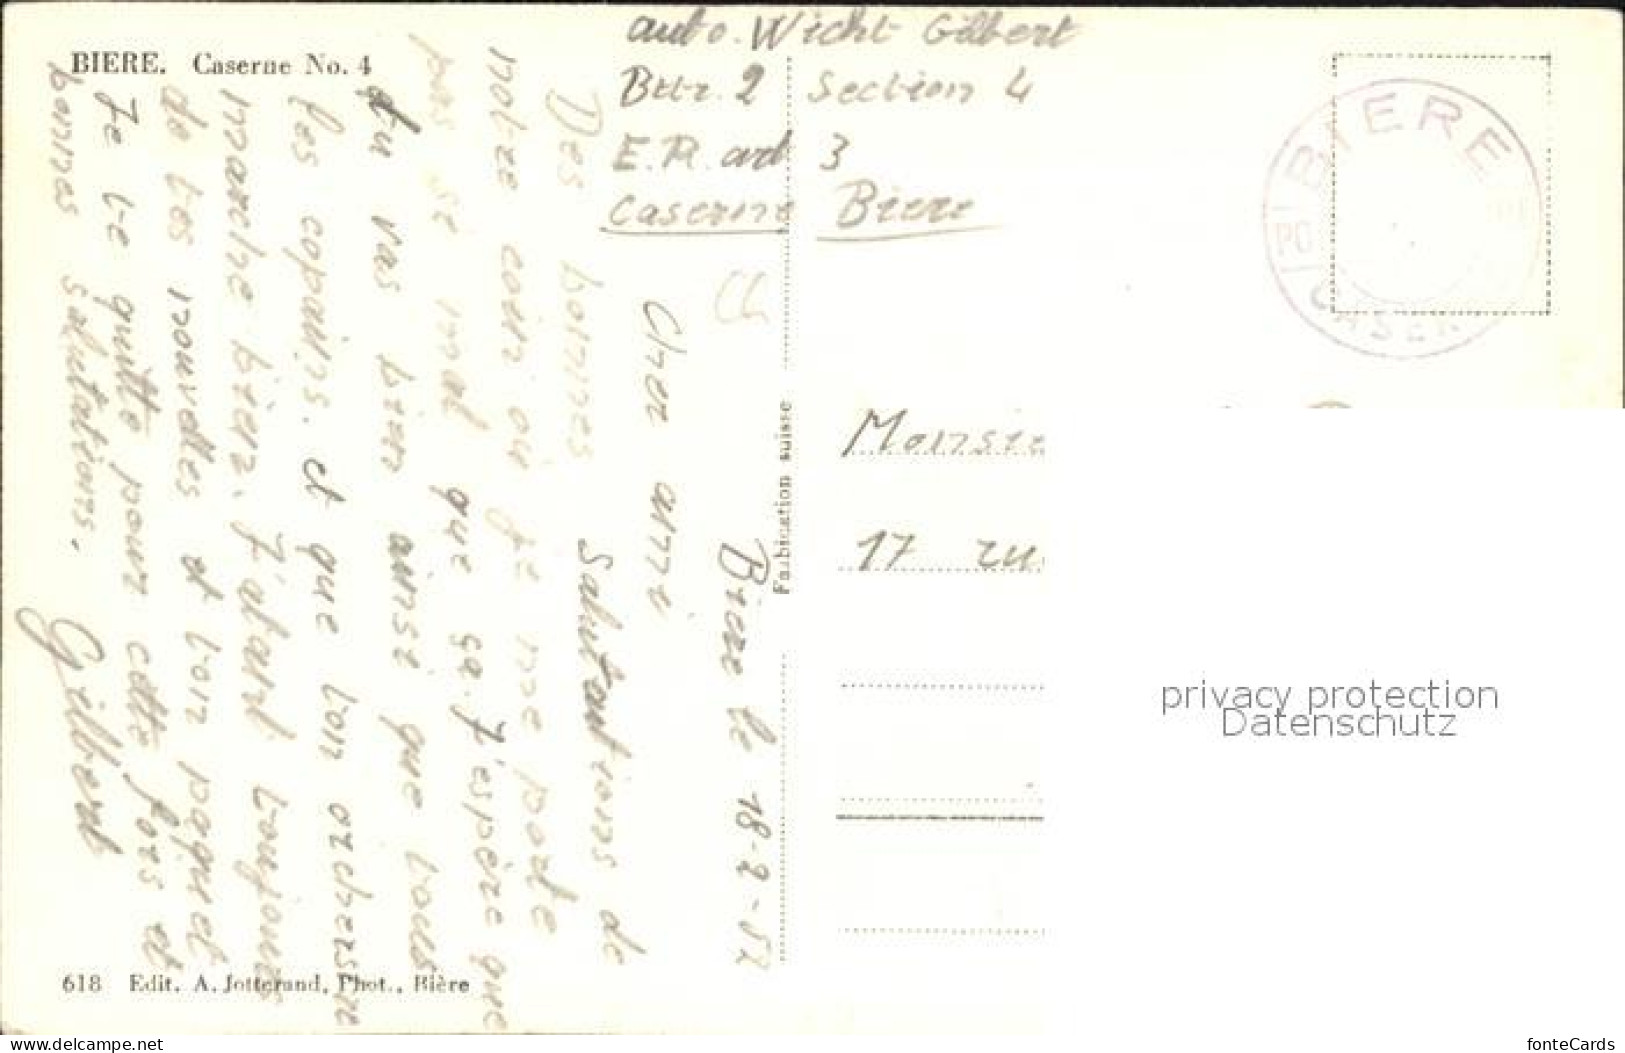 BIERE. Caserne No. 4
auto. Wicht Gilbert
Bttr. 2 Section 4
E.R. art 3
Caserne Bière
BIERE
CASER
Bière le 18-2-52
Cher ami
Des bonnes Salutations de
notre coin où je me porte
pas se mal que ça. J'espère que
tu vas bien ainsi que tous
les copains. et que ton orchestre
marche bien. J'attend toujours
de tes nouvelles et ton paquet
Je te quitte pour cette fois et
bonnes salutations.
Gilbert
Fabrication suisse
17
618 Edit. A. Jotterand, Phot., Bière
privacy protection
Datenschutz
www.delcampe.net
fonteCards